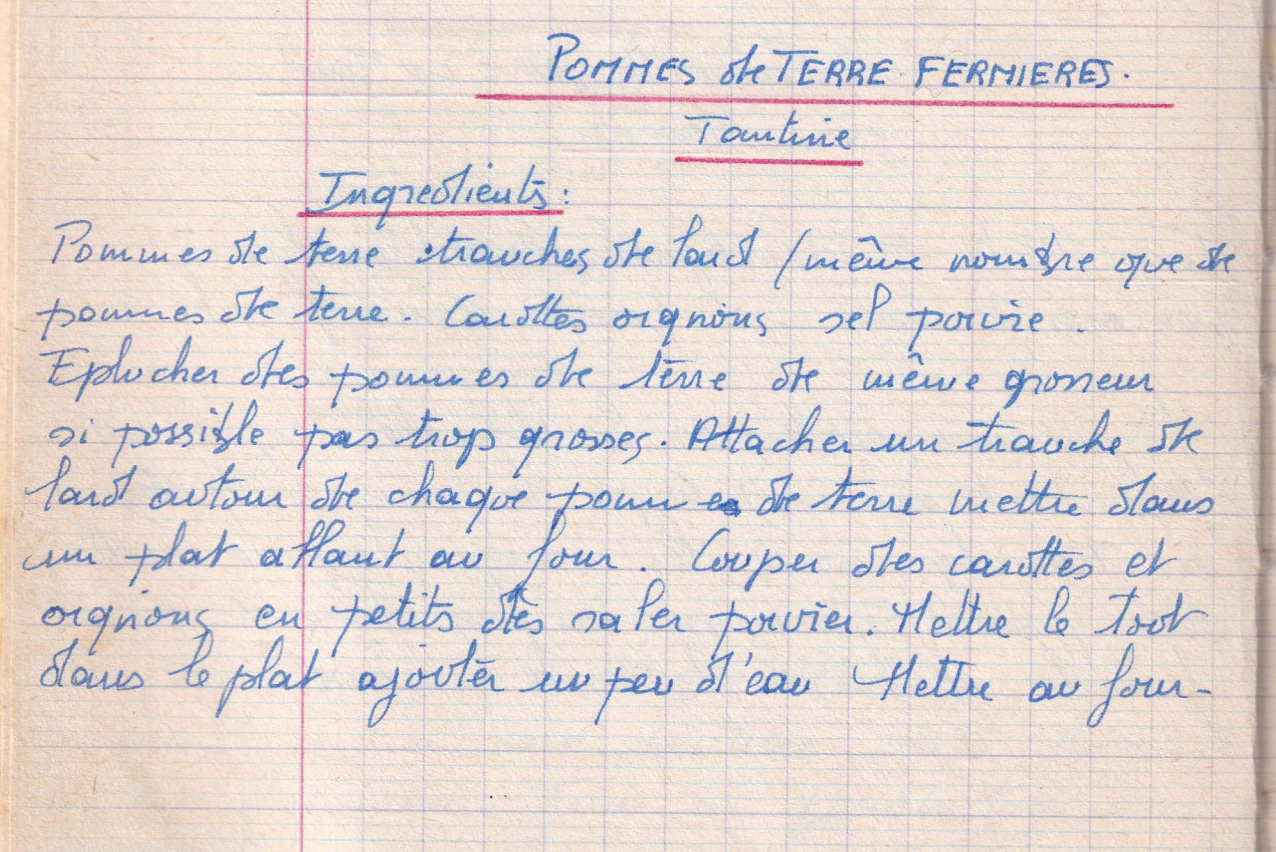 POMMES de TERRE FERMIERES.
Tantine
Ingredients:
Pommes de terre tranches de lard / même nombre que de
pommes de terre. Carottes oignons sel poivre.
Eplucher des pommes de terre de même grosseur
si possible pas trop grosses. Attacher un tranche de
lard autour de chaque pomme de terre mettre dans
un plat allant au four. Couper des carottes et
oignons en petits dès saler poivrer. Mettre le tout
dans le plat ajouter un peu d'eau Mettre au four-